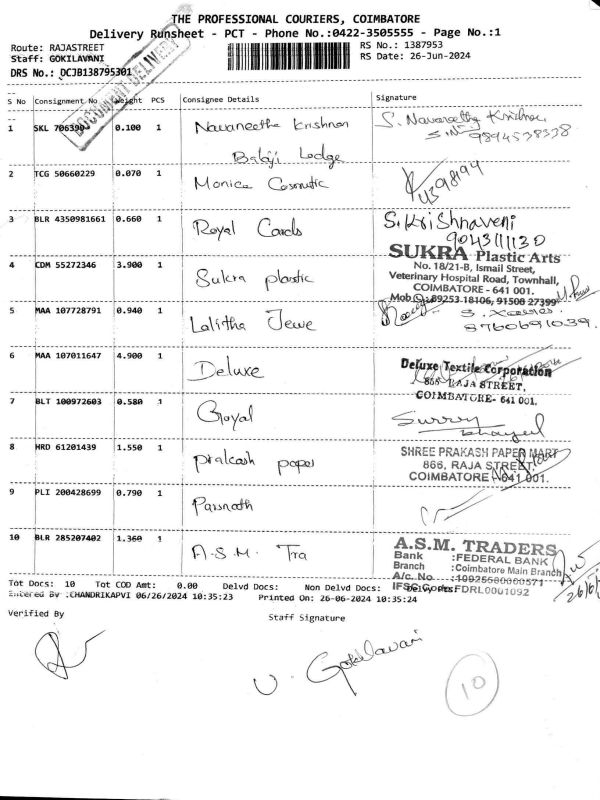 THE PROFESSIONAL COURIERS, COIMBATORE
Delivery Runsheet - PCT - Phone No.:0422-3505555 - Page No.:1
Route: RAJASTREET
RS No.: 1387953
Staff: GOKILAVANI
RS Date: 26-Jun-2024
DRS No.: DCJB138795301
DOCUMENT DELIVERY
S No Consignment No Weight PCS Consignee Details Signature
1 SKL 706390 0.100 1 Navaneetha Krishnan S. Navaneetha Krishnan
Balaji Lodge 9894538338
2 TCG 50660229 0.070 1 Monica Cosmatic
3 BLR 4350981661 0.660 1 Royal Cards S.Krishnaveni
9043111130
4 CDM 55272346 3.900 1 Sukra plastic
SUKRA Plastic Arts
No. 18/21-B, Ismail Street,
Veterinary Hospital Road, Townhall,
COIMBATORE - 641 001.
Mob : 89253 18106, 91508 27399
5 MAA 107728791 0.940 1 Lalitha Jewe
8760691039.
6 MAA 107011647 4.900 1 Deluxe
Deluxe Textile Corporation
RAJA STREET,
COIMBATORE- 641 001.
7 BLT 100972603 0.580 1 Goyal
8 HRD 61201439 1.550 1 prakash paper
SHREE PRAKASH PAPER MART
866, RAJA STREET,
COIMBATORE - 641 001.
9 PLI 200428699 0.790 1 Parsnath
10 BLR 285207402 1.360 1 A.S.M. Tra
A.S.M. TRADERS
Bank :FEDERAL BANK
Branch :Coimbatore Main Branch
A/c. No
FDRL0001092
Tot Docs: 10 Tot COD Amt: 0.00 Delvd Docs: Non Delvd Docs:
Entered By :CHANDRIKAPVI 06/26/2024 10:35:23 Printed On: 26-06-2024 10:35:24
Verified By Staff Signature
V. Gokilavani
10